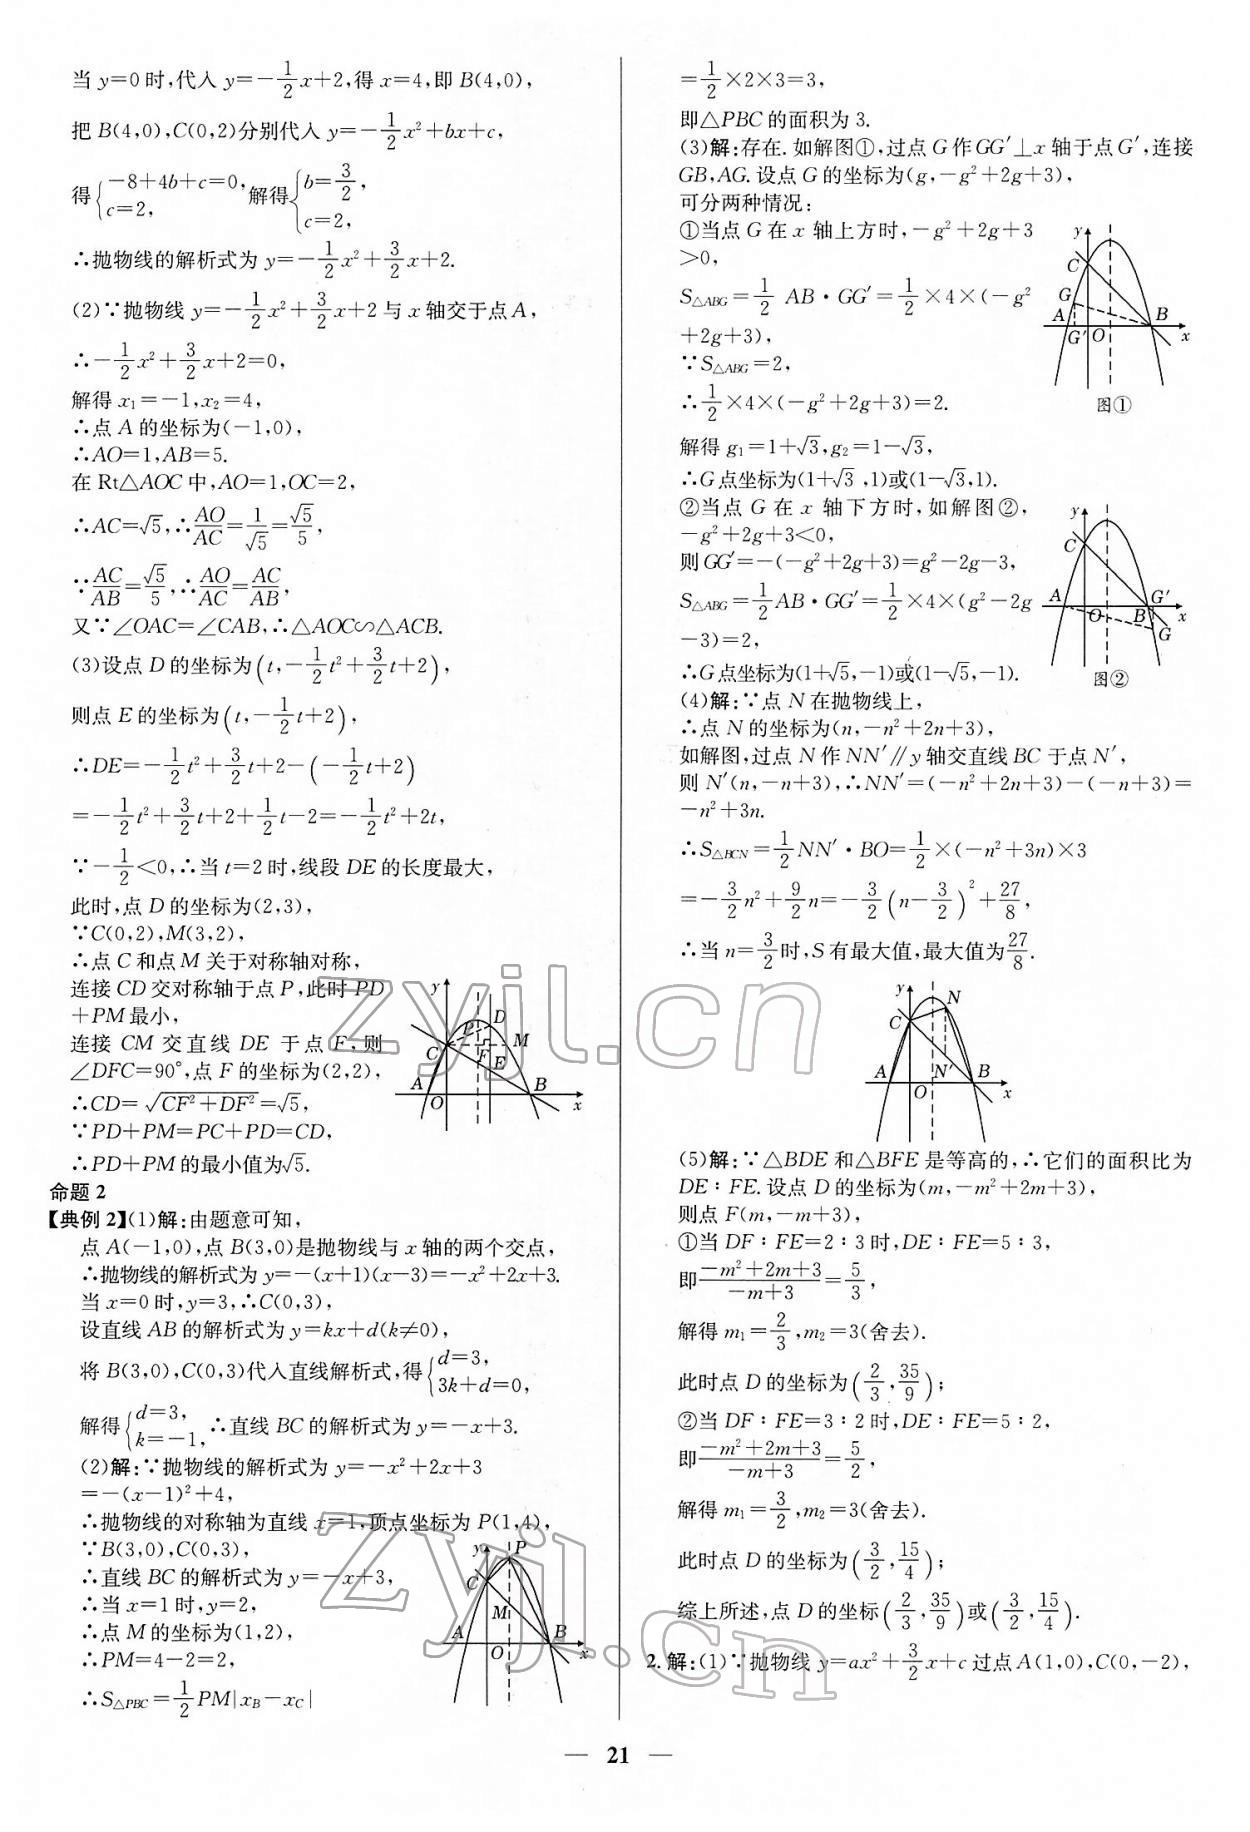 当 y=0 时,代入 y=-1/2x+2,得 x=4,即 B(4,0),
把 B(4,0),C(0,2)分别代入 y=-1/2x²+bx+c,
得{-8+4b+c=0, c=2, 解得{b=3/2, c=2,
∴抛物线的解析式为 y=-1/2x²+3/2x+2.
(2)∵抛物线 y=-1/2x²+3/2x+2 与 x 轴交于点A,
∴-1/2x²+3/2x+2=0,
解得 x₁=-1,x₂=4,
∴点 A 的坐标为(-1,0),
∴AO=1,AB=5.
在 Rt△AOC 中,AO=1,OC=2,
∴AC=√5,∴AO/AC=1/√5=√5/5,
∵AC/AB=√5/5,∴AO/AC=AC/AB,
又∵∠OAC=∠CAB,∴△AOC∽△ACB.
(3)设点 D 的坐标为(t,-1/2t²+3/2t+2),
则点 E 的坐标为(t,-1/2t+2),
∴DE=-1/2t²+3/2t+2-(-1/2t+2)
=-1/2t²+3/2t+2+1/2t-2=-1/2t²+2t,
∵-1/2<0,∴当 t=2 时,线段 DE 的长度最大,
此时,点 D 的坐标为(2,3),
∵C(0,2),M(3,2),
∴点 C 和点 M 关于对称轴对称,
连接 CD 交对称轴于点 P,此时 PD
+PM 最小,
连接 CM 交直线 DE 于点 F,则
∠DFC=90°,点 F 的坐标为(2,2),
∴CD=√(CF²+DF²)=√5,
∵PD+PM=PC+PD=CD,
∴PD+PM 的最小值为√5.
y
P D
C F M
E
A O B x
命题 2
【典例 2】(1)解:由题意可知,
点 A(-1,0),点 B(3,0)是抛物线与 x 轴的两个交点,
∴抛物线的解析式为 y=-(x+1)(x-3)=-x²+2x+3.
当 x=0 时,y=3,∴C(0,3),
设直线 AB 的解析式为 y=kx+d(k≠0),
将 B(3,0),C(0,3)代入直线解析式,得{d=3, 3k+d=0,
解得{d=3, k=-1, ∴直线 BC 的解析式为 y=-x+3.
(2)解:∵抛物线的解析式为 y=-x²+2x+3
=-(x-1)²+4,
∴抛物线的对称轴为直线 x=1,顶点坐标为 P(1,4),
∵B(3,0),C(0,3),
∴直线 BC 的解析式为 y=-x+3,
∴当 x=1 时,y=2,
∴点 M 的坐标为(1,2),
∴PM=4-2=2,
∴S△PBC=1/2PM|x_B-x_C|
y P
C
M
A O B x
=1/2×2×3=3,
即△PBC 的面积为 3.
(3)解:存在. 如解图①,过点 G 作 GG′⊥x 轴于点 G′,连接
GB,AG. 设点 G 的坐标为(g,-g²+2g+3),
可分两种情况:
①当点 G 在 x 轴上方时,-g²+2g+3
>0,
S△ABG=1/2 AB·GG′=1/2×4×(-g²
+2g+3),
∵S△ABG=2,
∴1/2×4×(-g²+2g+3)=2.
解得 g₁=1+√3,g₂=1-√3,
∴G 点坐标为(1+√3,1)或(1-√3,1).
y
C
G
A B
G′ O x
图①
②当点 G 在 x 轴下方时,如解图②,
-g²+2g+3<0,
则 GG′=-(-g²+2g+3)=g²-2g-3,
S△ABG=1/2AB·GG′=1/2×4×(g²-2g
-3)=2,
∴G 点坐标为(1+√5,-1)或(1-√5,-1).
y
C
A G′
O B x
G
图②
(4)解:∵点 N 在抛物线上,
∴点 N 的坐标为(n,-n²+2n+3),
如解图,过点 N 作 NN′∥y 轴交直线 BC 于点 N′,
则 N′(n,-n+3),∴NN′=(-n²+2n+3)-(-n+3)=
-n²+3n.
∴S△BCN=1/2NN′·BO=1/2×(-n²+3n)×3
=-3/2n²+9/2n=-3/2(n-3/2)²+27/8,
∴当 n=3/2时,S 有最大值,最大值为27/8.
y
N
C
A N′ B
O x
(5)解:∵△BDE 和△BFE 是等高的,∴它们的面积比为
DE∶FE. 设点 D 的坐标为(m,-m²+2m+3),
则点 F(m,-m+3),
①当 DF∶FE=2∶3 时,DE∶FE=5∶3,
即(-m²+2m+3)/(-m+3)=5/3,
解得 m₁=2/3,m₂=3(舍去).
此时点 D 的坐标为(2/3,35/9);
②当 DF∶FE=3∶2 时,DE∶FE=5∶2,
即(-m²+2m+3)/(-m+3)=5/2,
解得 m₁=3/2,m₂=3(舍去).
此时点 D 的坐标为(3/2,15/4);
综上所述,点 D 的坐标(2/3,35/9)或(3/2,15/4).
2. 解:(1)∵抛物线 y=ax²+3/2x+c 过点 A(1,0),C(0,-2),
— 21 —
zyjl.cn
zyjl.cn